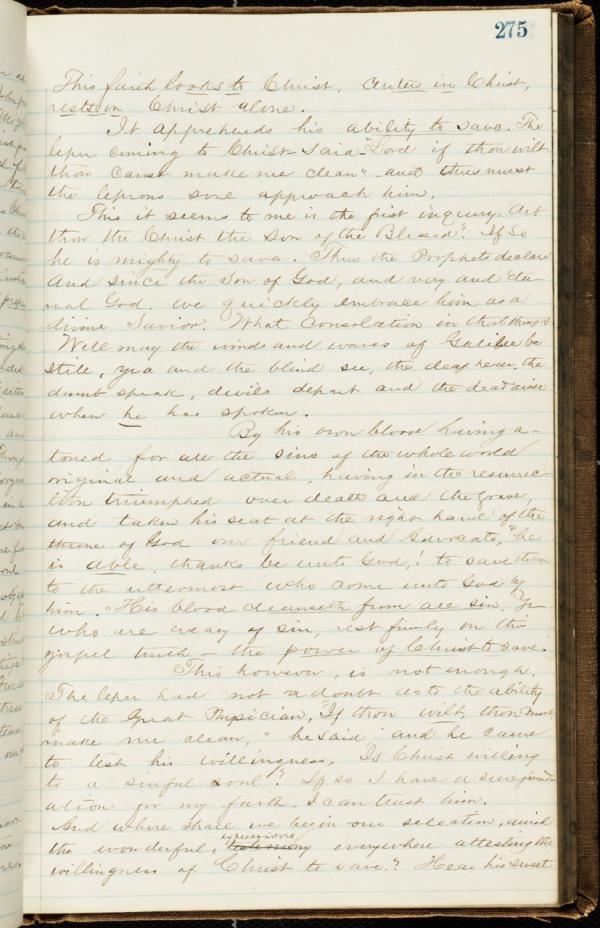 275
This faith looks to Christ, centers in Christ,
rests on Christ alone.
It apprehends his ability to save. The
leper coming to Christ said "Lord if thou wilt
thou canst make me clean" and thus must
the leprous soul approach him.
This it seems to me is the first inquiry. Art
thou the Christ the Son of the Blessed? If so
he is mighty to save. Thus the Prophets declare
And since the Son of God, and very and Eter-
nal God, we quickly embrace him as a
divine Savior. What consolation in that thought
Well may the winds and waves of Galilee be
still, yea and the blind see, the deaf hear, the
dumb speak, devils depart and the dead arise
when he has spoken.
By his own blood having a-
toned for all the sins of the whole world
original and actual, having in the resurrec-
tion triumphed over death and the grave,
and taken his seat at the right hand of the
throne of God our friend and Advocate, "he
is able, thanks be unto God,! to save them
to the uttermost who come unto God by
him. "His blood cleanseth from all sin. Ye
who are weary of sin, rest firmly on this
gospel truth – the power of Christ to save.
This however, is not enough.
The leper had not a doubt as to the ability
of the Great Physician, "If thou wilt, thou canst
make me clean," he said and he came
to test his willingness. Is Christ willing
to a sinful soul? If so I have a sure found
ation for my faith. I can trust him.
And where shall we begin our selection, amid
the wonderful, testimony expressions everywhere attesting the
willingness of Christ to save? Hear his sweet